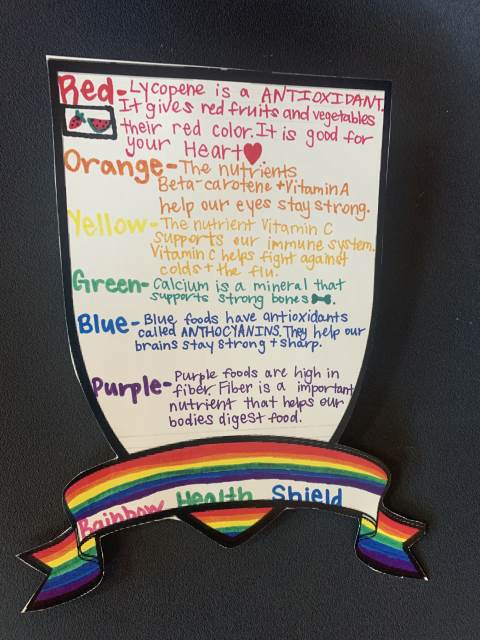 Red- Lycopene is a ANTIOXIDANT.
It gives red fruits and vegetables
their red color. It is good for
your Heart
Orange- The nutrients
Beta-carotene + Vitamin A
help our eyes stay strong.
Yellow- The nutrient Vitamin C
supports our immune system.
Vitamin C helps fight against
colds + the flu.
Green- Calcium is a mineral that
supports strong bones.
Blue- Blue foods have antioxidants
called ANTHOCYANINS. They help our
brains stay strong + sharp.
Purple- Purple foods are high in
fiber. Fiber is a important
nutrient that helps our
bodies digest food.
Rainbow Health Shield